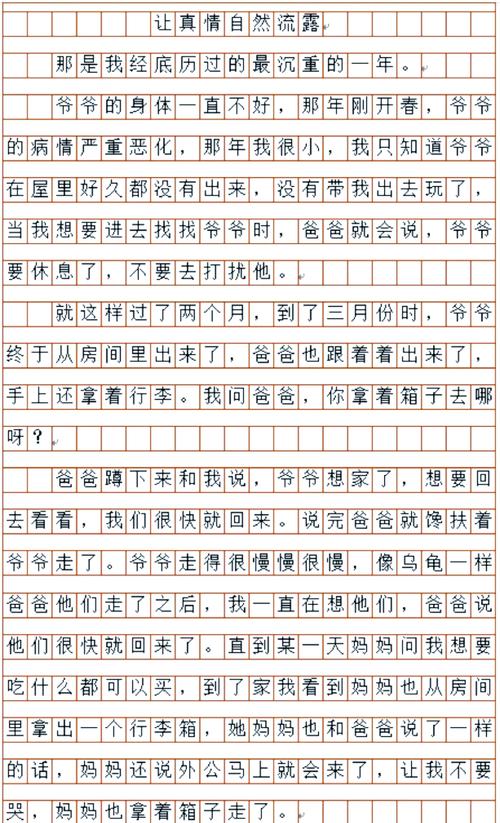 让真情自然流露
那是我经底历过的最沉重的一年。
爷爷的身体一直不好，那年刚开春，爷爷
的病情严重恶化，那年我很小，我只知道爷爷
在屋里好久都没有出来，没有带我出去玩了，
当我想要进去找找爷爷时，爸爸就会说，爷爷
要休息了，不要去打扰他。
就这样过了两个月，到了三月份时，爷爷
终于从房间里出来了，爸爸也跟着着出来了，
手上还拿着行李。我问爸爸，你拿着箱子去哪
呀？
爸爸蹲下来和我说，爷爷想家了，想要回
去看看，我们很快就回来。说完爸爸就馋扶着
爷爷走了。爷爷走得很慢慢很慢，像乌龟一样
爸爸他们走了之后，我一直在想他们，爸爸说
他们很快就回来了。直到某一天妈妈问我想要
吃什么都可以买，到了家我看到妈妈也从房间
里拿出一个行李箱，她妈妈也和爸爸说了一样
的话，妈妈还说外公马上就会来了，让我不要
哭，妈妈也拿着箱子走了。